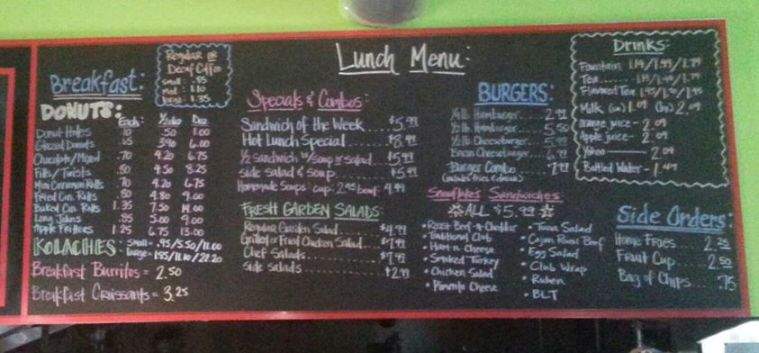 Breakfast:
Regular or
Decaf Coffee
small .85
med 1.10
large 1.35
DONUTS:
Each: 1/2 doz Doz
Donut Holes .10 .50 1.00
Glazed Donuts .65 3.90 6.00
Chocolate/Mixed .70 4.20 6.75
Fills/Twists .80 4.50 8.25
Mini Cinnamon Rolls .70 4.20 6.75
Fried Cin. Rolls .80 4.80 9.00
Baked Cin. Rolls 1.35 7.50 14.00
Long Johns .85 5.00 9.00
Apple Fritters 1.25 6.75 13.00
KOLACHES: small - .95/5.50/11.00
large - 1.85/11.10/22.20
Breakfast Burritos = 2.50
Breakfast Croissants = 3.25
Lunch Menu:
Specials & Combos:
Sandwich of the Week $5.99
Hot Lunch Special $8.99
1/2 sandwich w/soup or salad $5.99
side salad & soup $5.99
Homemade Soups cup: 2.95 bowl: 4.99
FRESH GARDEN SALADS:
Regular Garden Salad $4.99
Grilled or Fried Chicken Salad $7.99
Chef Salads $7.99
Side Salads $2.99
BURGERS:
1/4 lb. Hamburger 2.99
1/2 lb. Hamburger 5.50
1/2 lb. Cheeseburger 5.99
Bacon Cheeseburger 6.99
Burger Combo 7.99
(includes fries & drink)
Snowflake's Sandwiches
ALL $5.99
• Roast Beef & Cheddar
• Traditional Club
• Ham n Cheese
• Smoked Turkey
• Chicken Salad
• Pimento Cheese
• Tuna Salad
• Cajun Roast Beef
• Egg Salad
• Club Wrap
• Ruben
• BLT
Drinks:
Fountain 1.19/1.49/1.79
Tea 1.19/1.49/1.79
Flavored Tea 1.45/1.70/1.95
Milk (sm) 1.09 (lg) 2.09
orange juice - 2.09
Apple juice - 2.09
Yahoo 2.09
Bottled Water - 1.09
Side Orders:
Home Fries 2.25
Fruit Cup 2.50
Bag of Chips .75